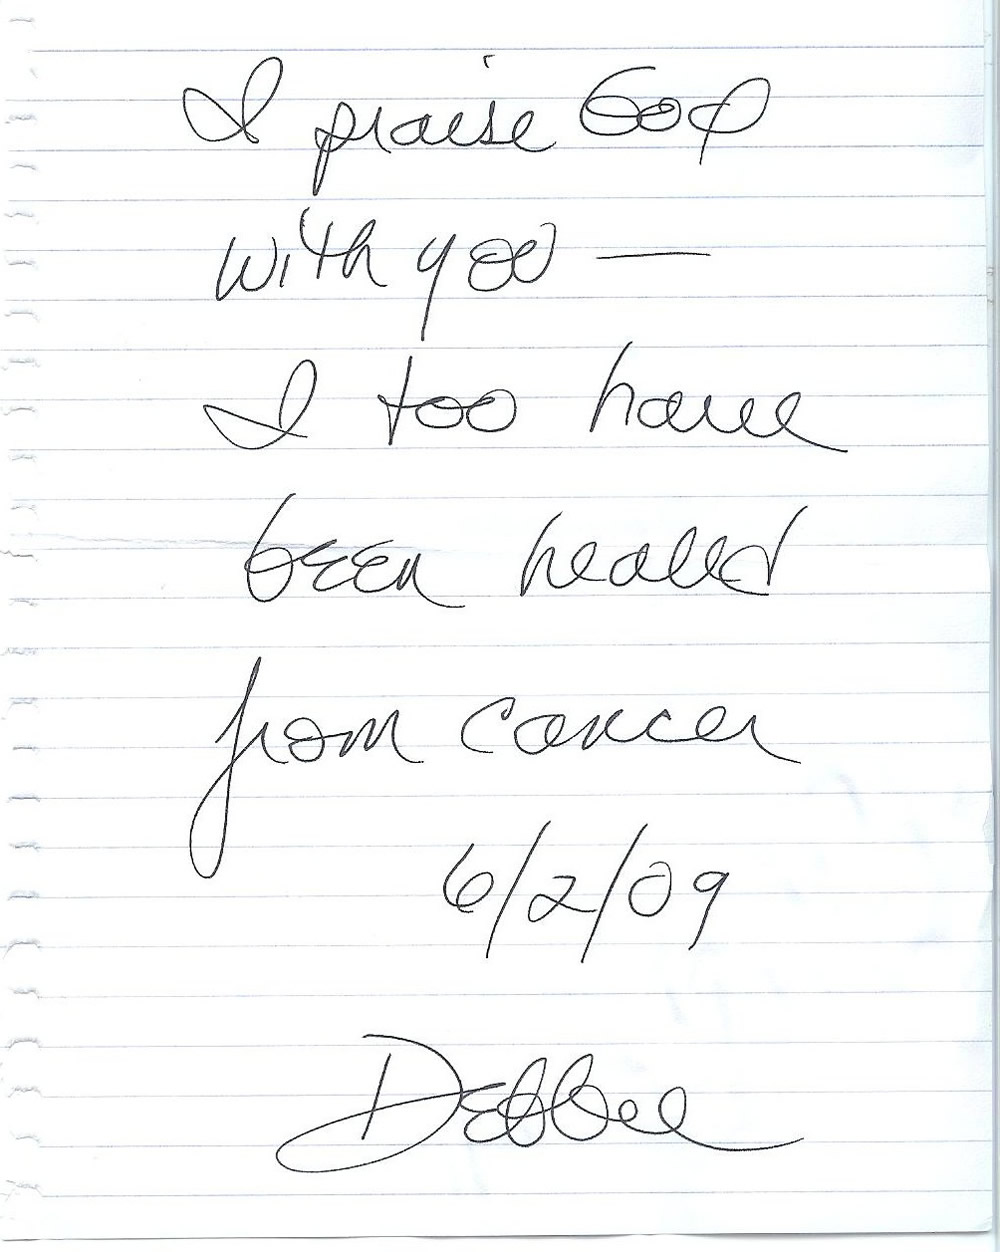 I praise God
with you —
I too have
been healed
from cancer
6/2/09
Debbee